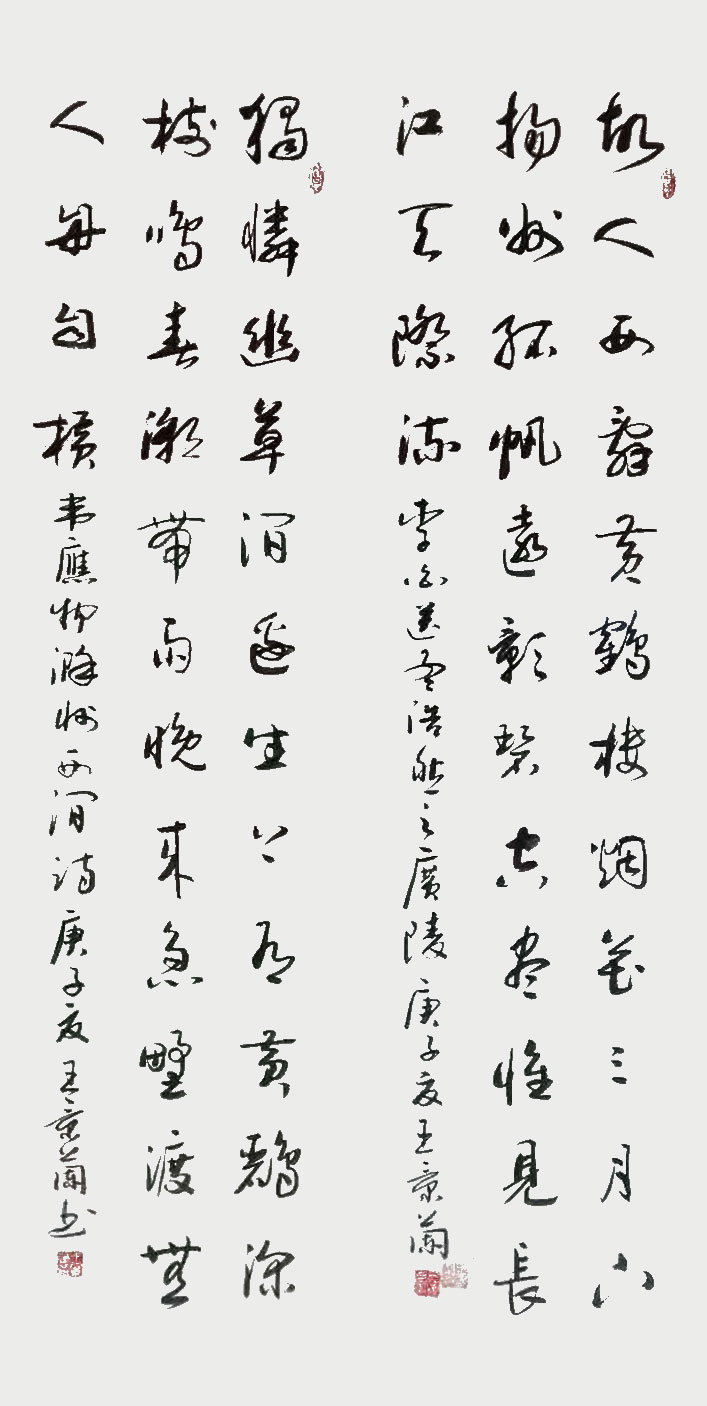 故人西辭黃鶴樓烟花三月下
揚州孤帆遠影碧空盡惟見長
江天際流 李白送孟浩然之廣陵 庚子夏王景蘭
獨憐幽草澗邊生上有黃鸝深
樹鳴春潮帶雨晚來急野渡無
人舟自橫 韋應物滁州西澗詩 庚子夏王景蘭书